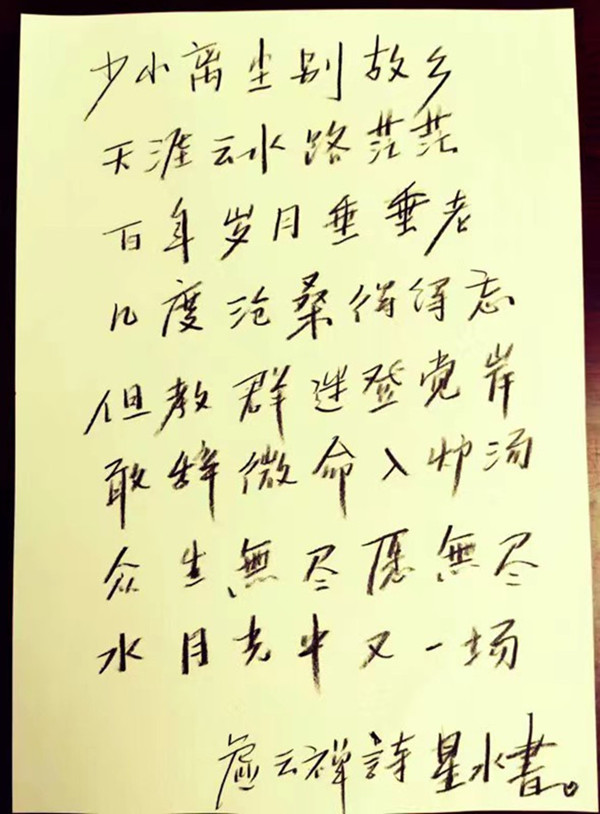 少小离尘别故乡
天涯云水路茫茫
百年岁月垂垂老
几度沧桑得得忘
但教群迷登觉岸
敢辞微命入炉汤
众生無尽愿無尽
水月光中又一场
虚云禅詩 星水書。